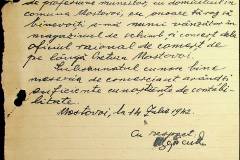 de profesiune muncitor cu domiciliul in
comuna Mostovoi, vă roagă să
binevoiți, a mă numi vânzător in
magazinul de schimb și concert dela
oficiul raional de comerț de
pe lângă Pretura Mostovoi.
Subsemnatul cunosc bine
meseria de comerciant având
suficiente cunoștiințe de conta-
bilitate.
Mostovoi, la 14 Iulie 1942.
Cu respect,